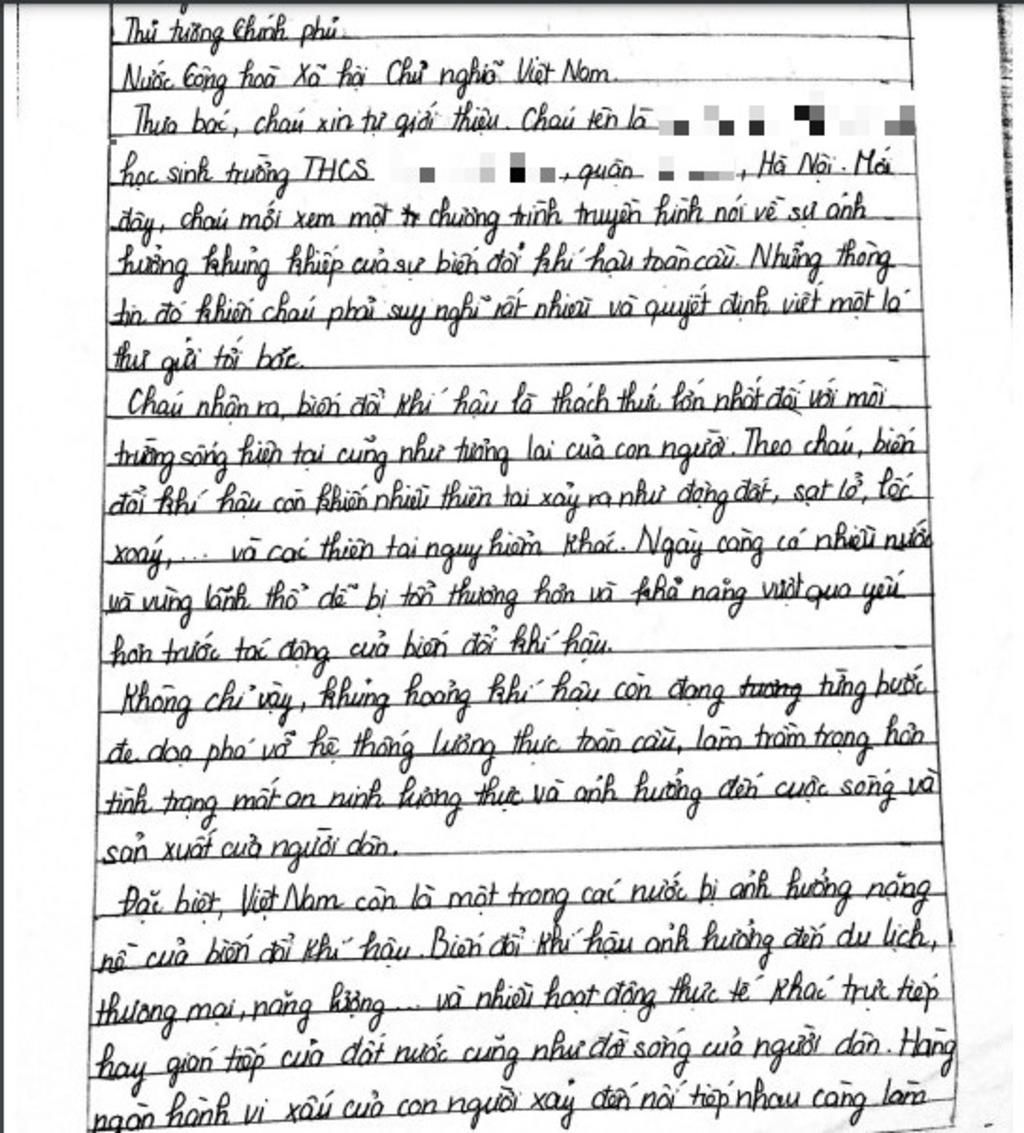 Thủ tướng Chính phủ
Nước Cộng hoà Xã hội Chủ nghĩa Việt Nam.
Thưa bác, cháu xin tự giới thiệu. Cháu tên là
học sinh trường THCS , quận , Hà Nội. Mới
đây, cháu mới xem một tr chương trình truyền hình nói về sự ảnh
hưởng khủng khiếp của sự biến đổi khí hậu toàn cầu. Những thông
tin đó khiến cháu phải suy nghĩ rất nhiều và quyết định viết một lá
thư gửi tới bác.
Cháu nhận ra, biến đổi khí hậu là thách thức lớn nhất đối với môi
trường sống hiện tại cũng như tương lai của con người. Theo cháu, biến
đổi khí hậu còn khiến nhiều thiên tai xảy ra như động đất, sạt lở, lốc
xoáy,... và các thiên tai nguy hiểm khác. Ngày càng có nhiều nước
và vùng lãnh thổ dễ bị tổn thương hơn và khả năng vượt qua yếu
hơn trước tác động của biến đổi khí hậu.
Không chỉ vậy, khủng hoảng khí hậu còn đang tương từng bước
đe doạ phá vỡ hệ thống lương thực toàn cầu, làm trầm trọng hơn
tình trạng mất an ninh lương thực và ảnh hưởng đến cuộc sống và
sản xuất của người dân.
Đặc biệt, Việt Nam còn là một trong các nước bị ảnh hưởng nặng
nề của biến đổi khí hậu. Biến đổi khí hậu ảnh hưởng đến du lịch,
thương mại, năng lượng... và nhiều hoạt động thực tế khác trực tiếp
hay gián tiếp của đất nước cũng như đời sống của người dân. Hàng
ngàn hành vi xấu của con người xảy đến nối tiếp nhau càng làm